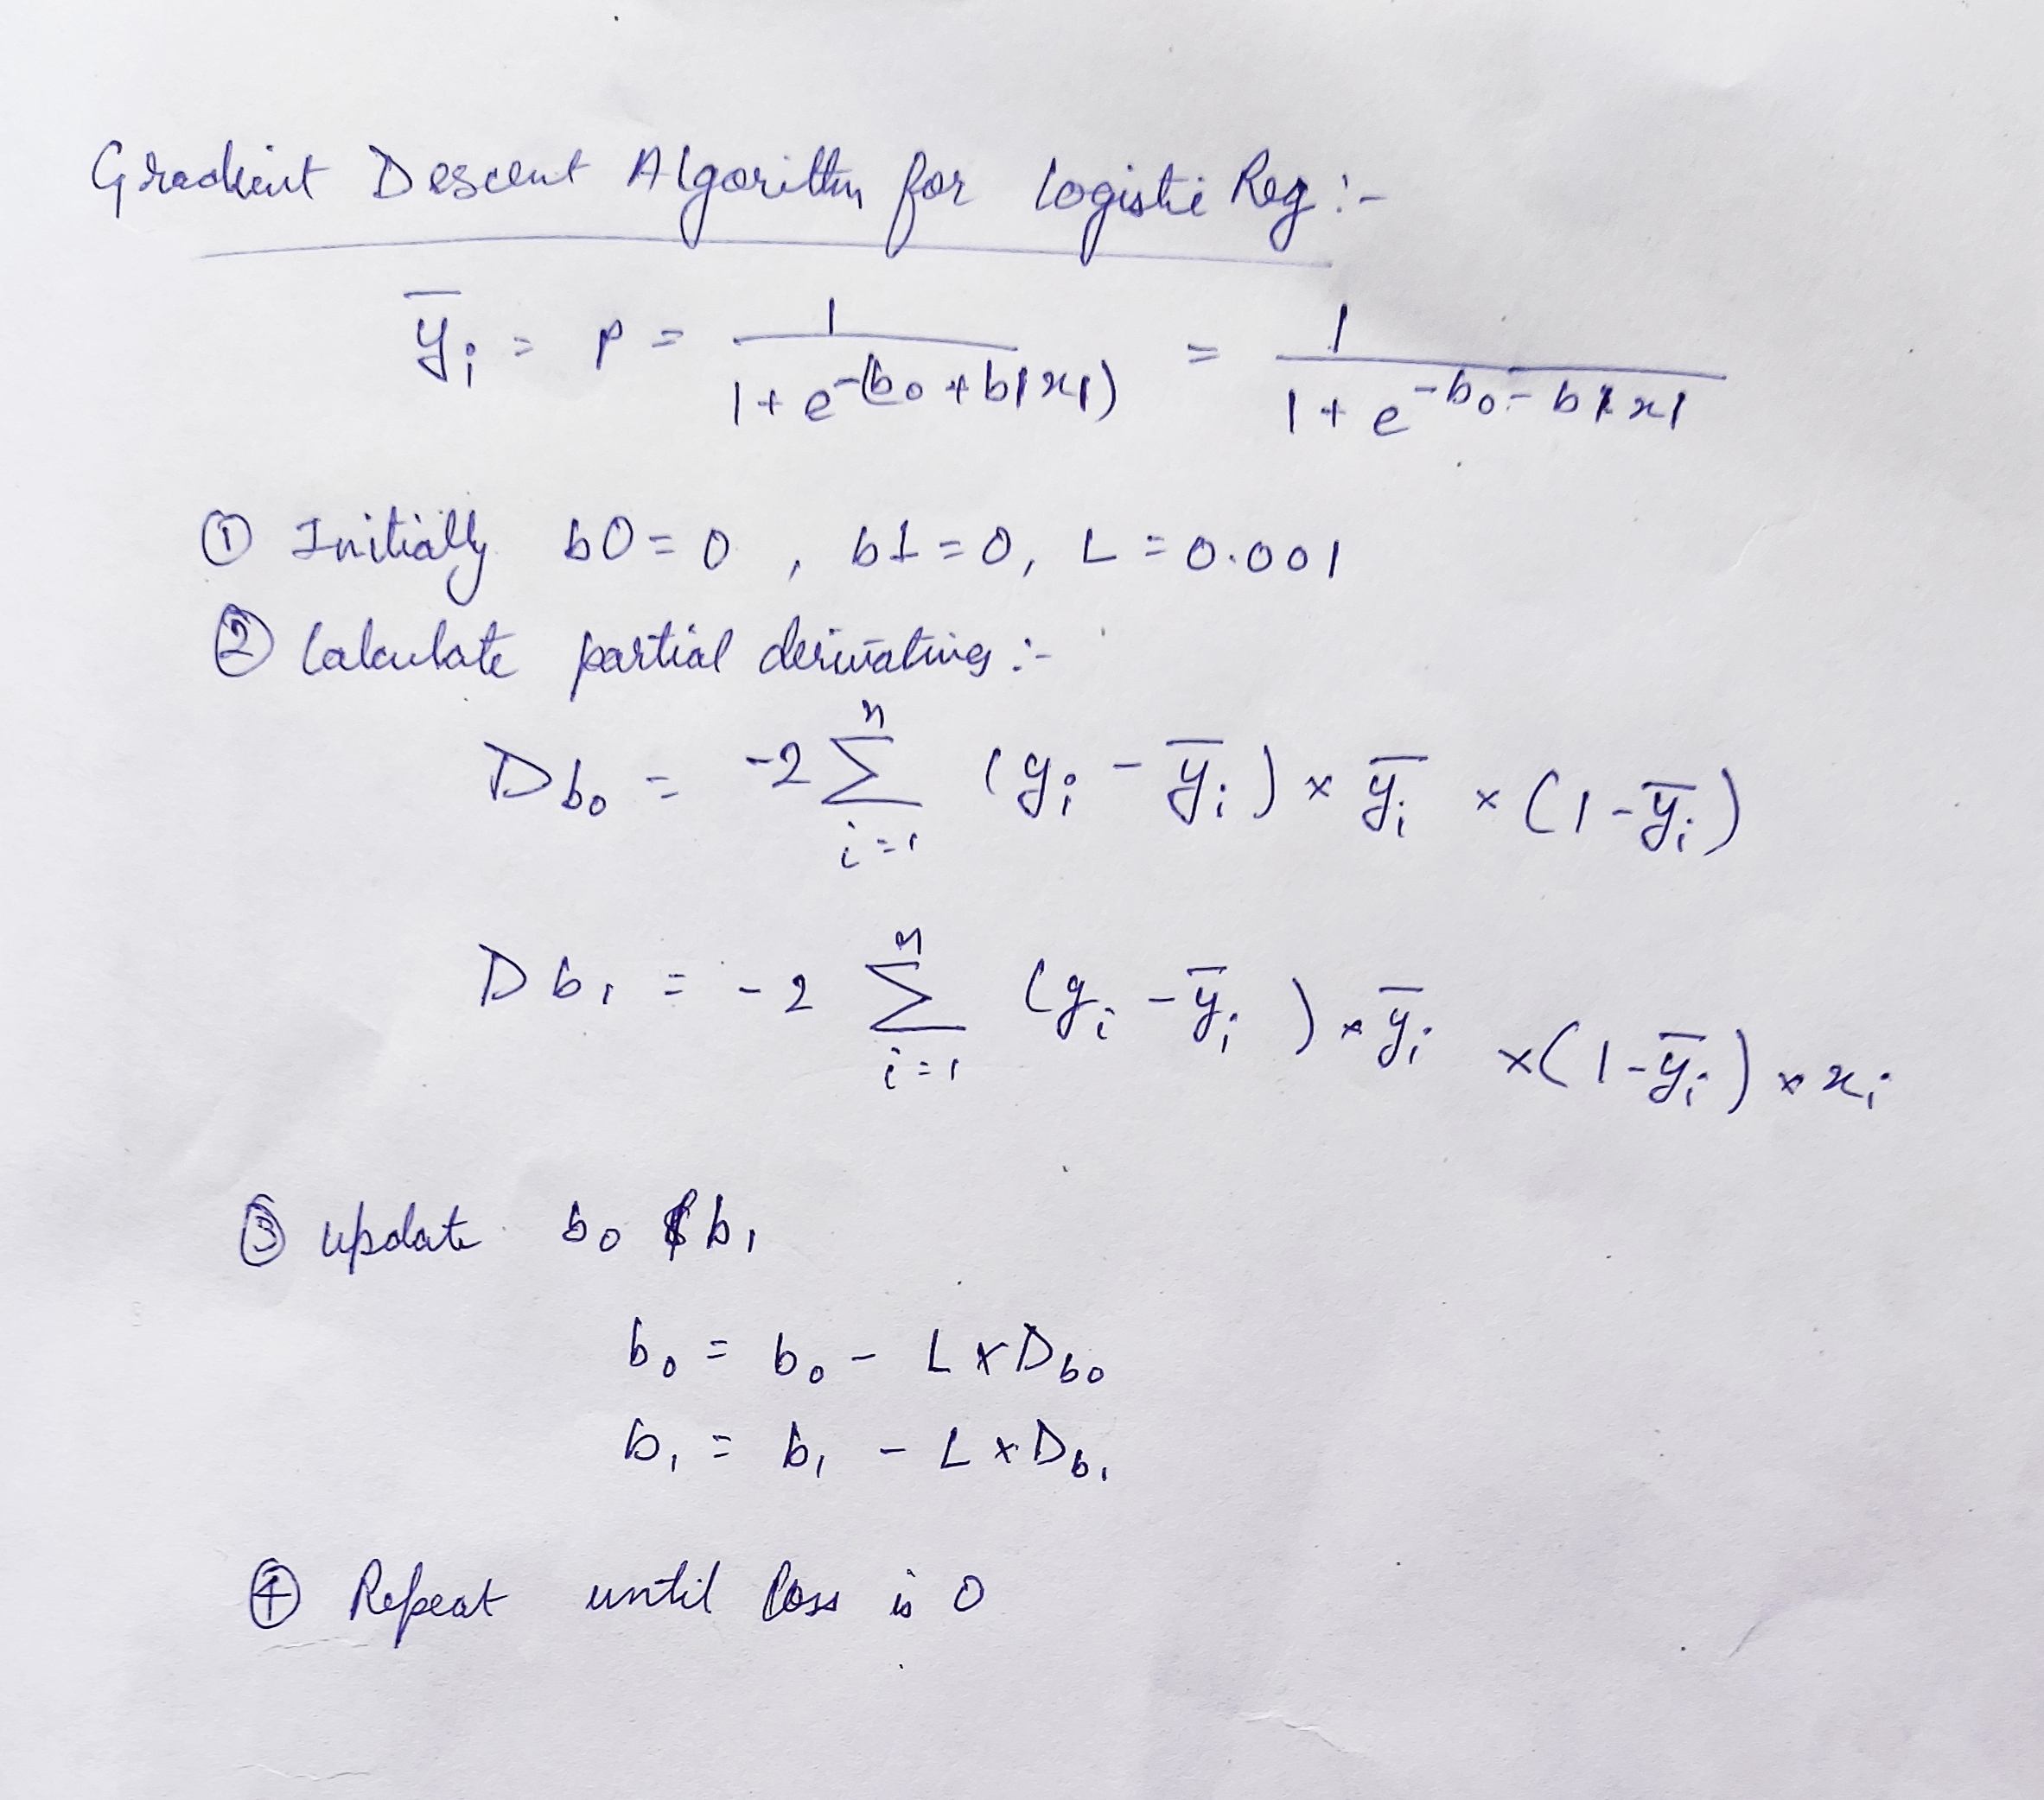 Gradient Descent Algorithm for Logistic Reg :-
ȳi = p = 1 / (1 + e^-(b0 + b1x1)) = 1 / (1 + e^-b0 - b1x1)
① Initially b0 = 0 , b1 = 0, L = 0.001
② Calculate partial derivatives :-
Db0 = -2 Σ_{i=1}^{n} (yi - ȳi) × ȳi × (1 - ȳi)
Db1 = -2 Σ_{i=1}^{n} (yi - ȳi) × ȳi × (1 - ȳi) × xi
③ update b0 & b1
b0 = b0 - L × Db0
b1 = b1 - L × Db1
④ Repeat until loss is 0